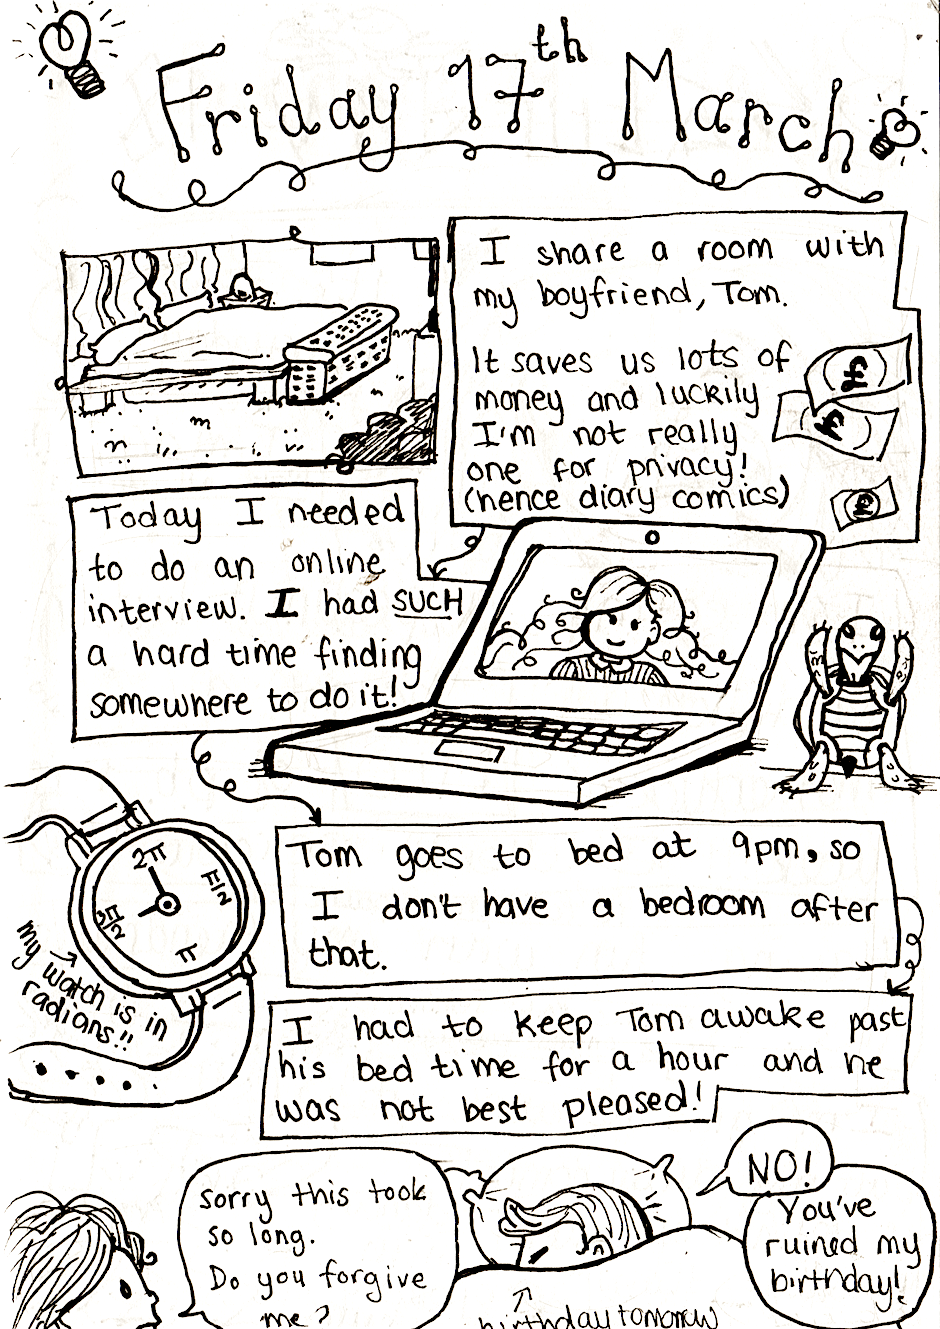 Friday 17th March
I share a room with
my boyfriend, Tom.
It saves us lots of
money and luckily
I'm not really
one for privacy!
(hence diary comics)
Today I needed
to do an online
interview. I had SUCH
a hard time finding
somewhere to do it!
Tom goes to bed at 9pm, so
I don't have a bedroom after
that.
2π
π/2
π
3π/2
my watch is in
radians!!
I had to keep Tom awake past
his bed time for a hour and he
was not best pleased!
sorry this took
so long.
Do you forgive
me?
NO!
You've
ruined my
birthday!
birthday tomorrow